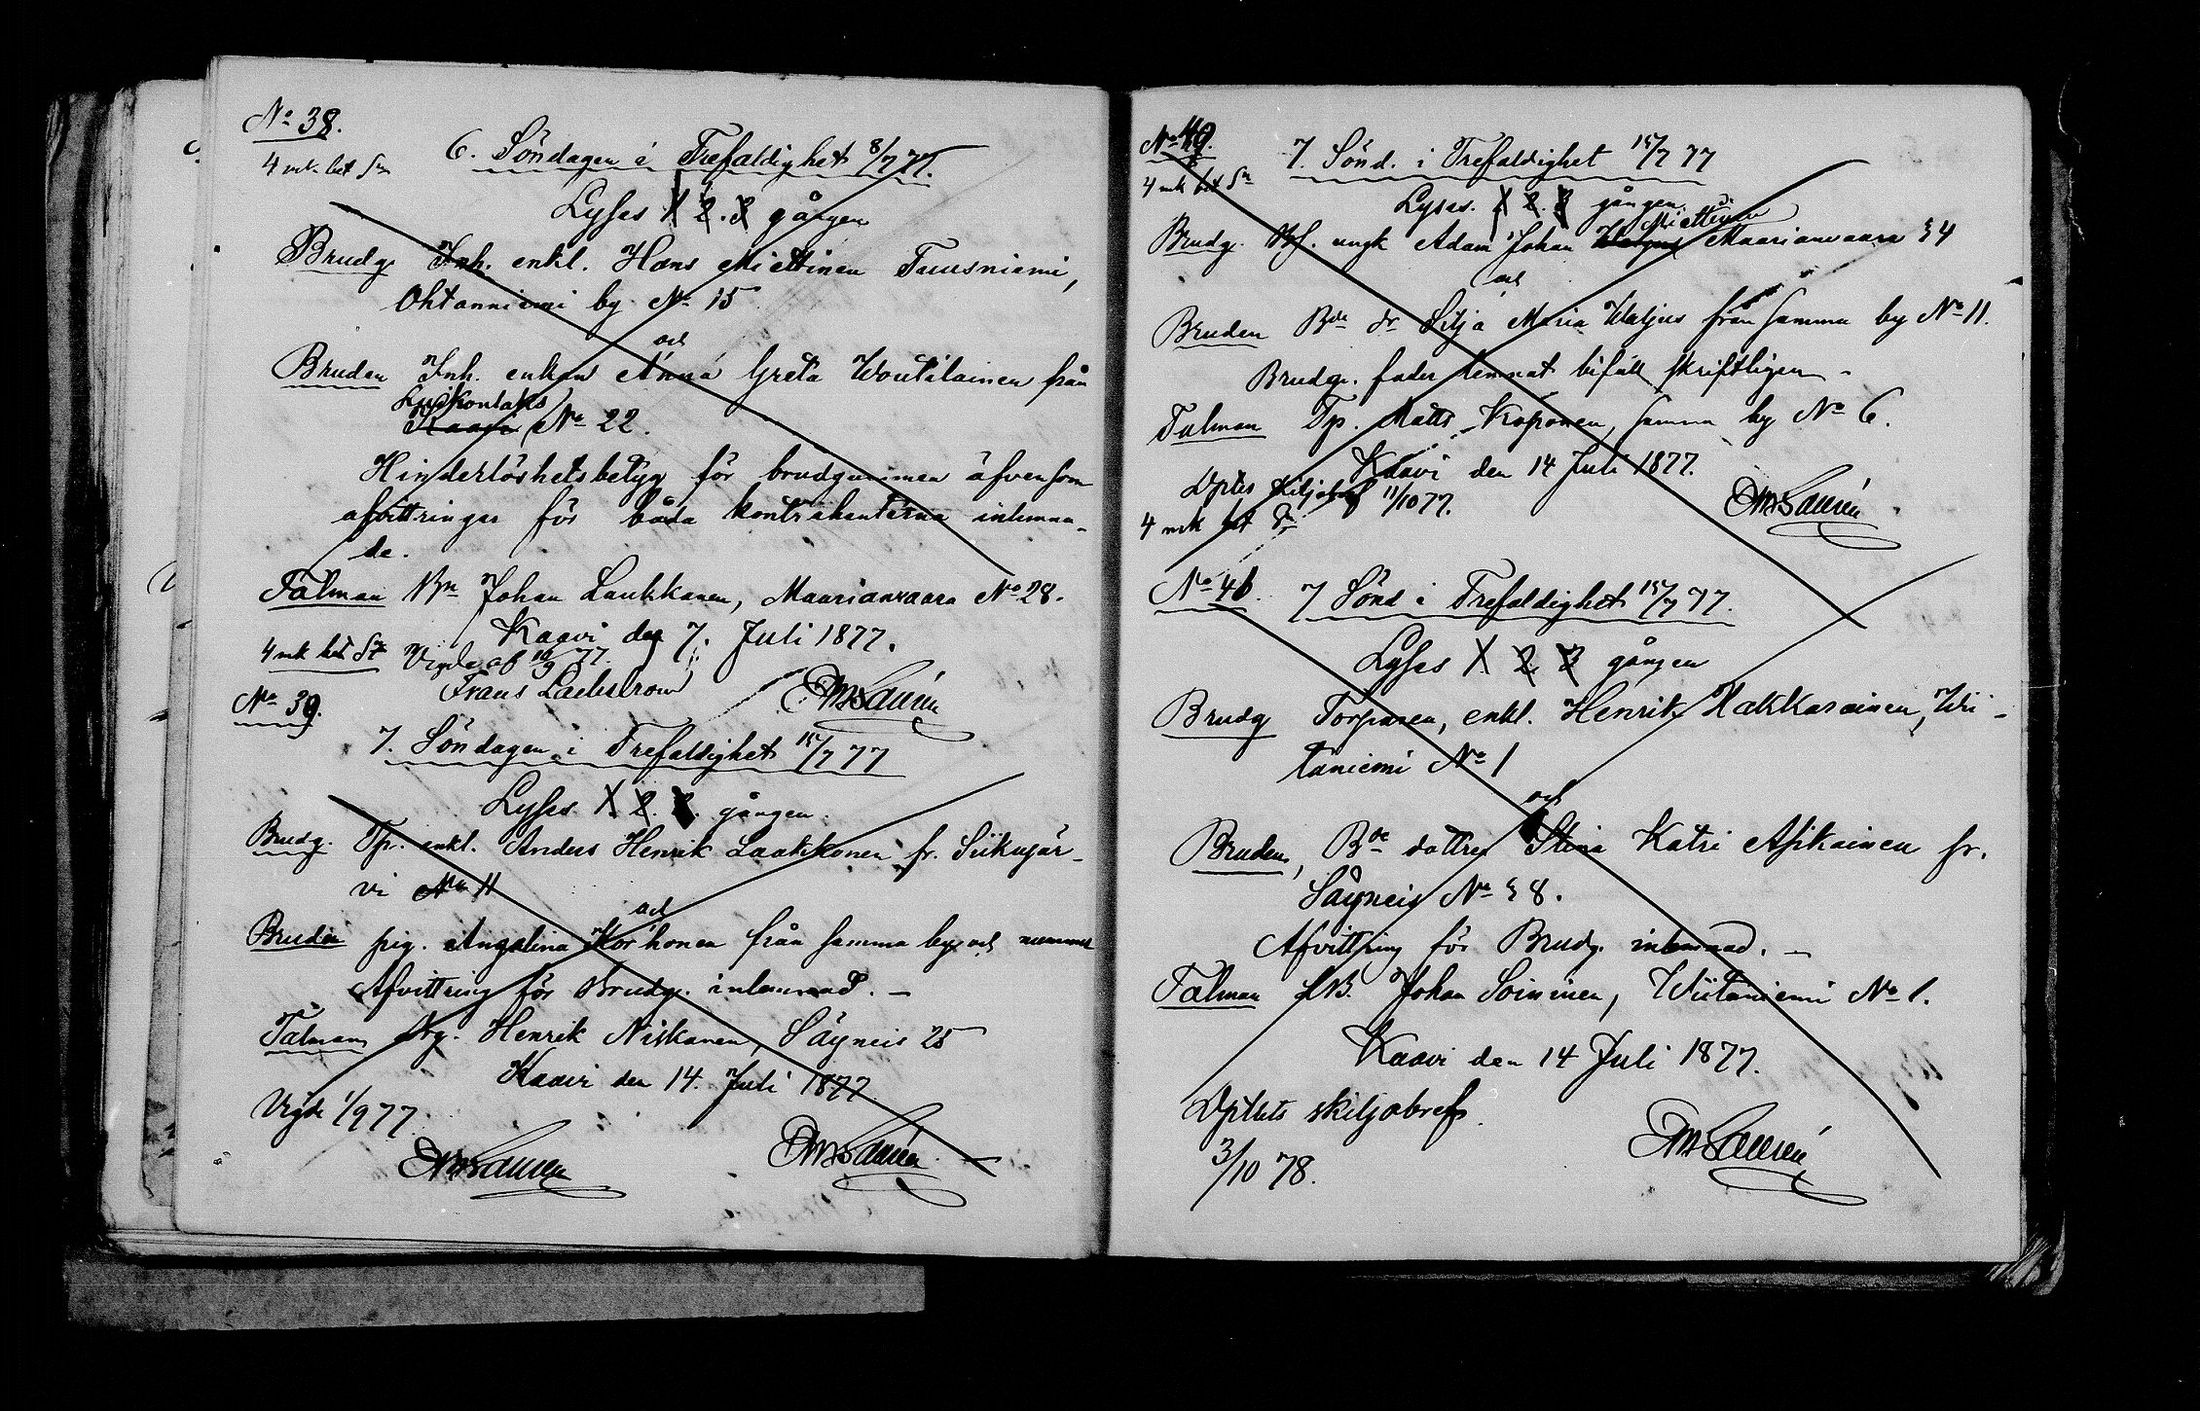 No 38.
4 mk bet Sn
6. Söndagen i Trefaldighet 8/7 77.
Lyses 1 2. 3 gången
Brudg Inh. enkl. Hans Miettinen Tuusniemi,
Ohtanniemi by No 15
och
Bruden Inh. enkan Anna Greta Woutilainen från
Luikonlaks
Kaavi No 22.
Hinderlöshetsbetyg för brudgummen äfvensom
afvittringar för båda kontrahenterna inlemna-
de.
Talman Bn Johan Laukkanen, Maarianvaara No 28.
Kaavi den 7. Juli 1877.
4 mk bet Sn Vigde af 10/9 77.
Frans
No 39.
7. Söndagen i Trefaldighet 15/7 77
Lyses 1. 2. 3. gången
Brudg. Tp. enkl. Anders Henrik Laakkonen fr. Siikajär-
vi No 11
och
Bruden pig. Angalina Korhonen från samma by och nummer
Afvittring för Brudg. inlemnad. —
Talman Henrik Niskanen, Säyneis 25
Kaavi den 14. Juli 1877
Vigde 1/9 77.
No 40.
4 mk bet Sn
7. Sönd. i Trefaldighet 15/7 77
Lyses. 1 2. 3 gången.
Miettinen
Brudg. ungk Adam Johan Watjus Maarianvaara 34
och
Bruden Bde dr Silja Maria Watjus från samma by No 11.
Brudg. fader lemnat bifall skriftligen —
Talman Tp. Matts Koponen, samma by No 6.
Kaavi den 14 Juli 1877.
Dptes skiljobref 11/10 77.
4 mk bet Sn
No 41. 7 Sönd i Trefaldighet 15/7 77.
Lyses 1 2 3 gången
Brudg Torparen, enkl. Henrik Hakkarainen, Wii-
taniemi No 1
och
Bruden, Bde dottren Stina Katri Asikainen fr.
Säyneis No 38.
Afvittring för Brudg. inlemnad. —
Talman Johan Soininen, Wiitaniemi No 1.
Kaavi den 14 Juli 1877.
Dptets skiljobref
3/10 78.